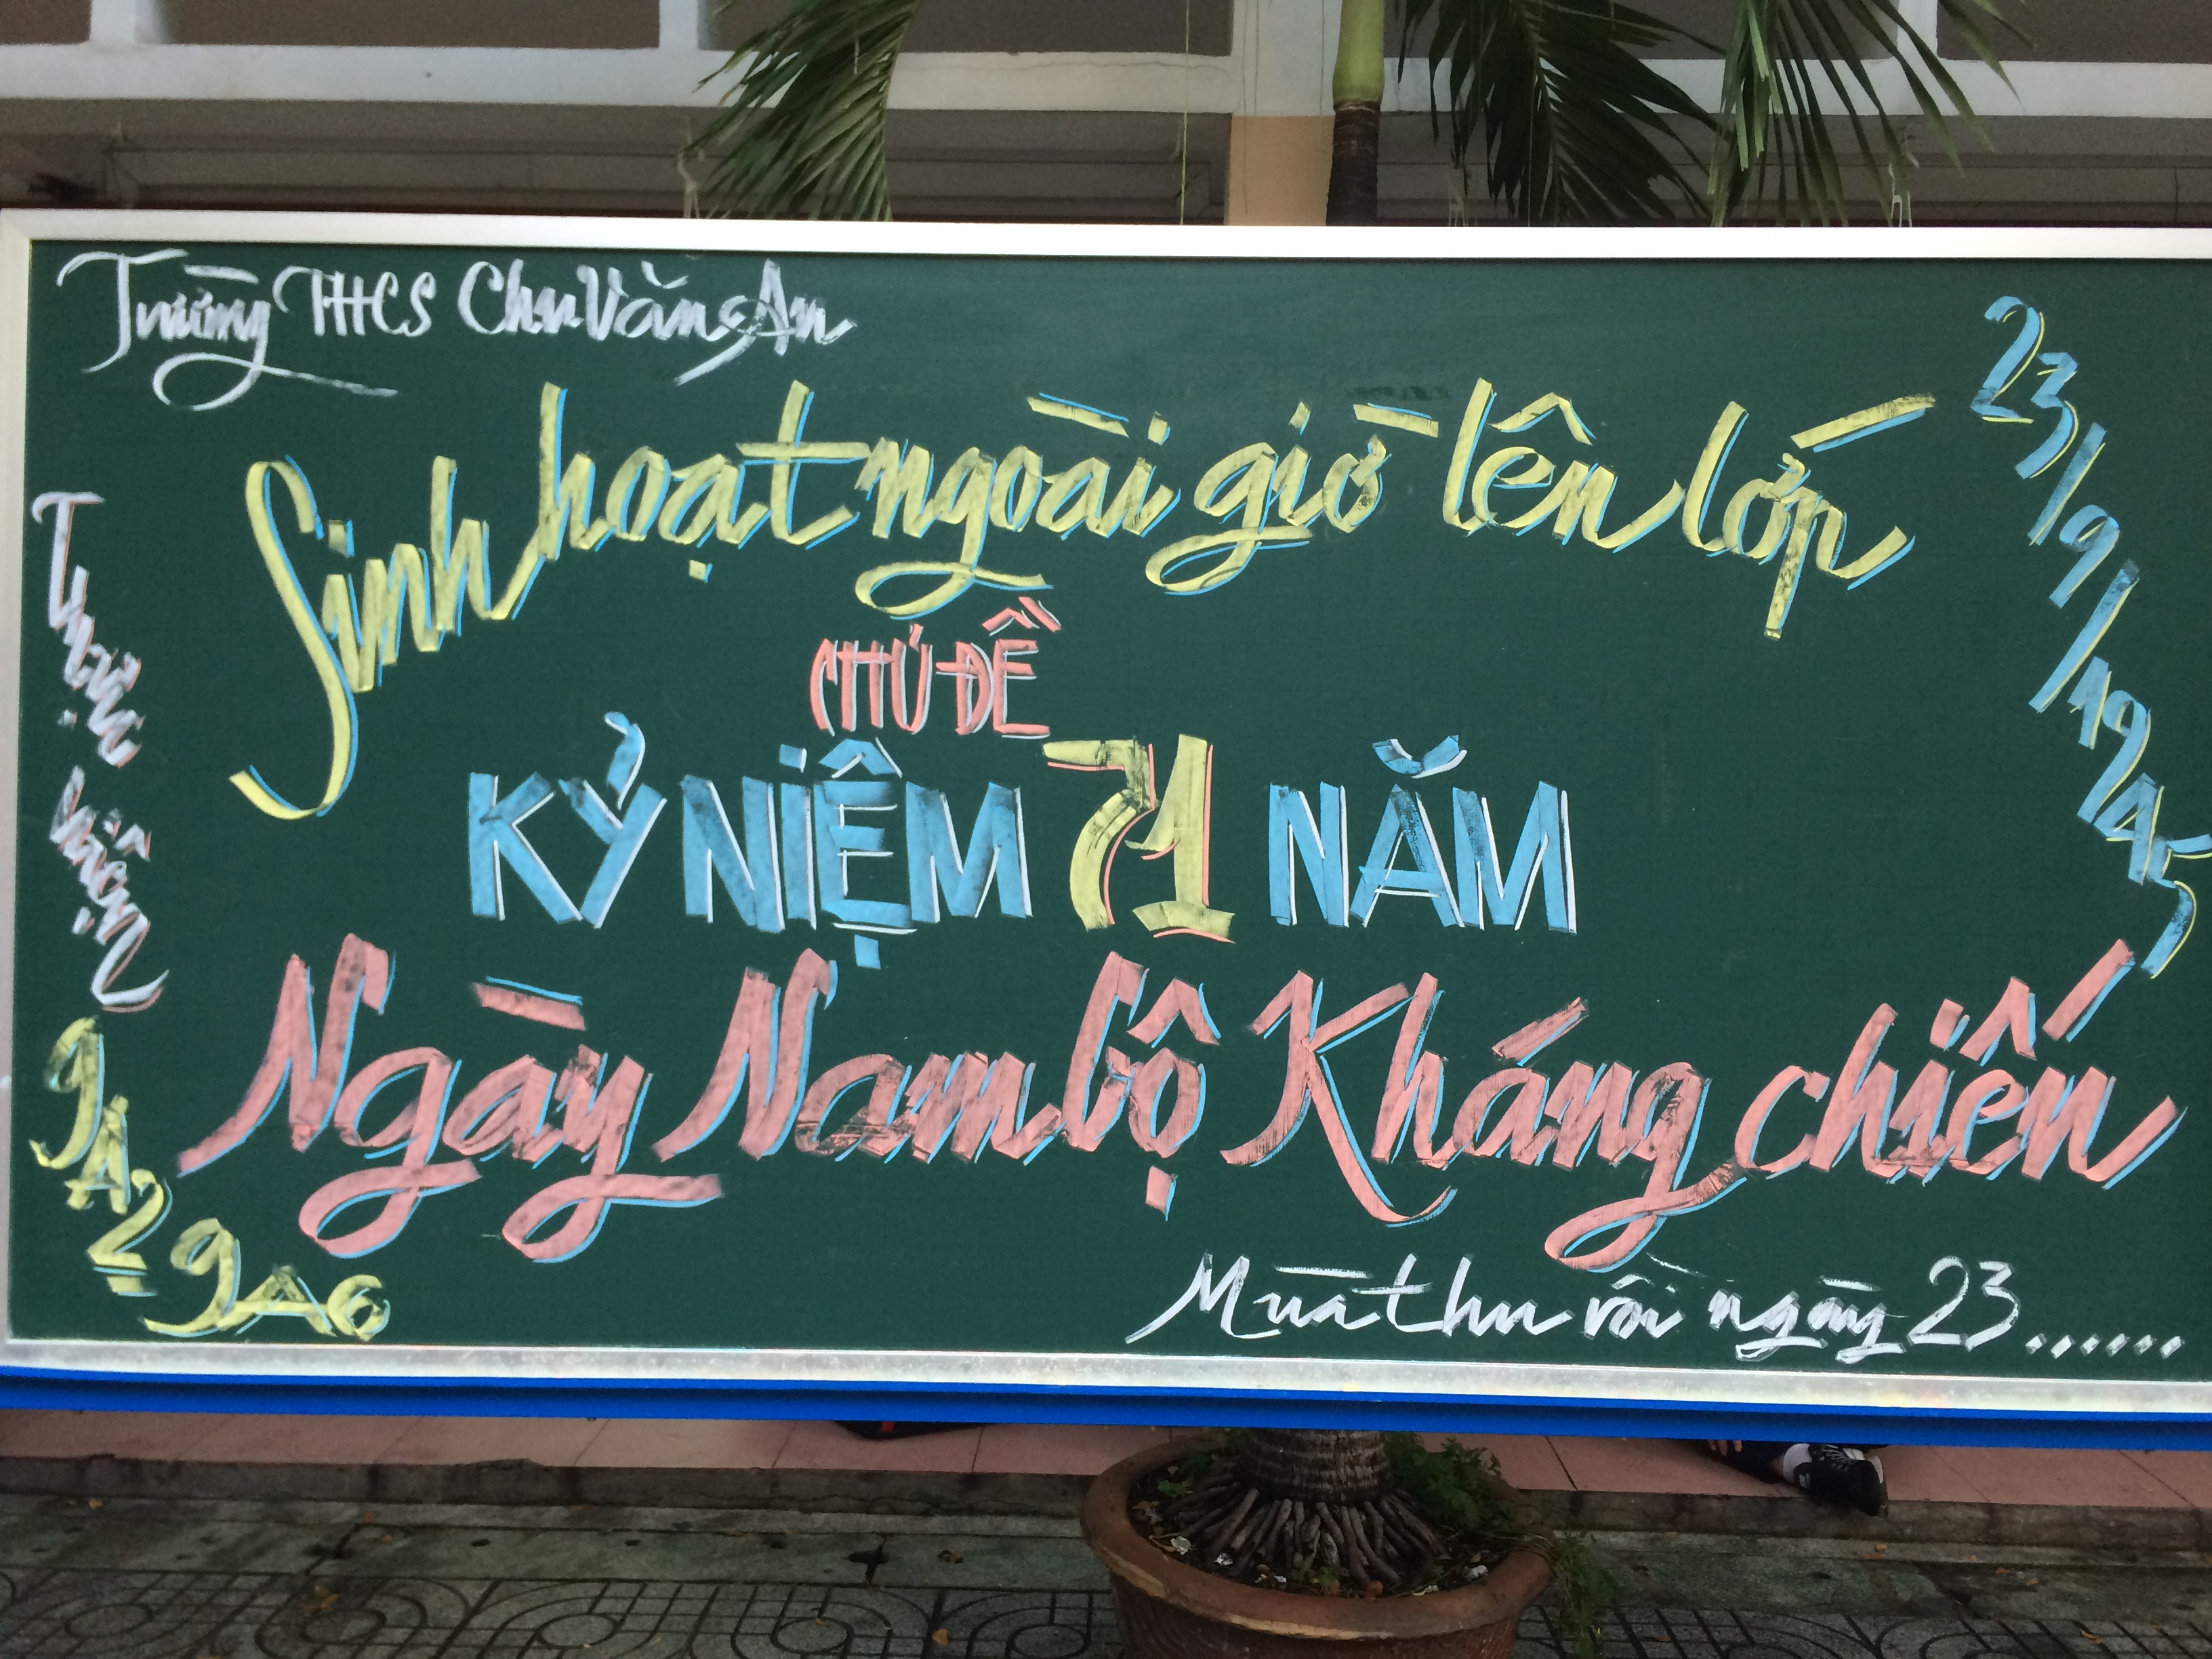 Trường THCS Chu Văn An
Sinh hoạt ngoài giờ lên lớp
23/9/1945
CHỦ ĐỀ
KỶ NIỆM 71 NĂM
Ngày Nam bộ Kháng chiến
Thực hiện
9A2 - 9A6
Mùa thu rồi ngày 23......